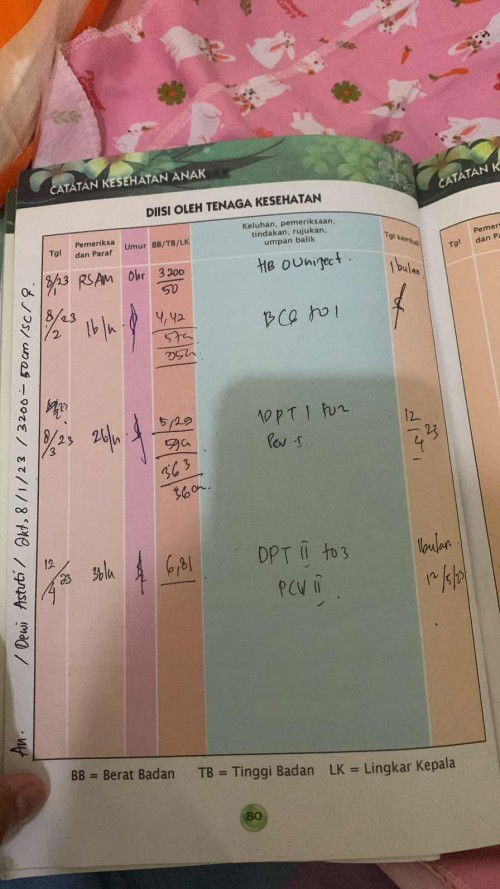 CATATAN KESEHATAN ANAK
DIISI OLEH TENAGA KESEHATAN
Tgl
Pemeriksa dan Paraf
Umur
BB/TB/LK
Keluhan, pemeriksaan,
tindakan, rujukan,
umpan balik
Tgl kembali
8/1 23 RSAM 0hr 3200/50 HB 0 Uniject. 1 bulan
8/2 23 1bln 4,42 57cm BCG to 1
8/3 23 2bln 5,20 59cm 363 36cm DPT 1 to2 12/4 23
PCV I
12/4 23 3bln 6,81 DPT II to3 1bulan
PCV II 12/5/23
An. / Dewi Astuti / 8/1/23 / 3200 - 50cm / SC / ♀.
BB = Berat Badan TB = Tinggi Badan LK = Lingkar Kepala
80
CATATAN K
Tgl
Pemer
dan Pa